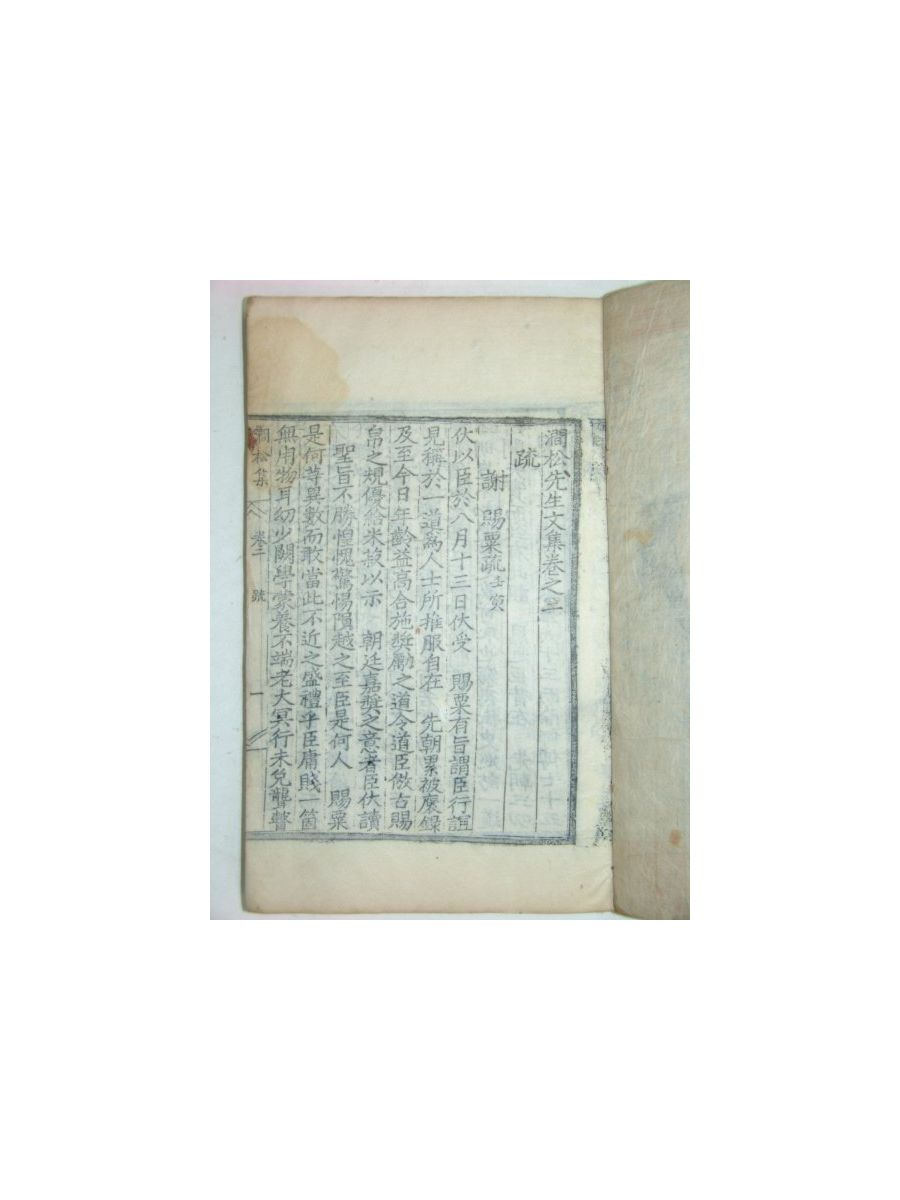 澗松先生文集卷之二
疏
謝 賜粟疏壬寅
伏以臣於八月十三日伏受 賜粟有旨謂臣行誼
見稱於一道爲人士所推服自在 先朝累被褒錄
及至今日年齡益高合施奬勵之道令道臣倣古賜
帛之規優給米菽以示 朝廷嘉奬之意者臣伏讀
聖旨不勝惶愧驚惕隕越之至臣是何人 賜粟
是何等異數而敢當此不近之盛禮乎臣庸賤一箇
無用物耳幼少闕學蒙養不端老大冥行未免聾瞽
澗松集 卷二 疏 一